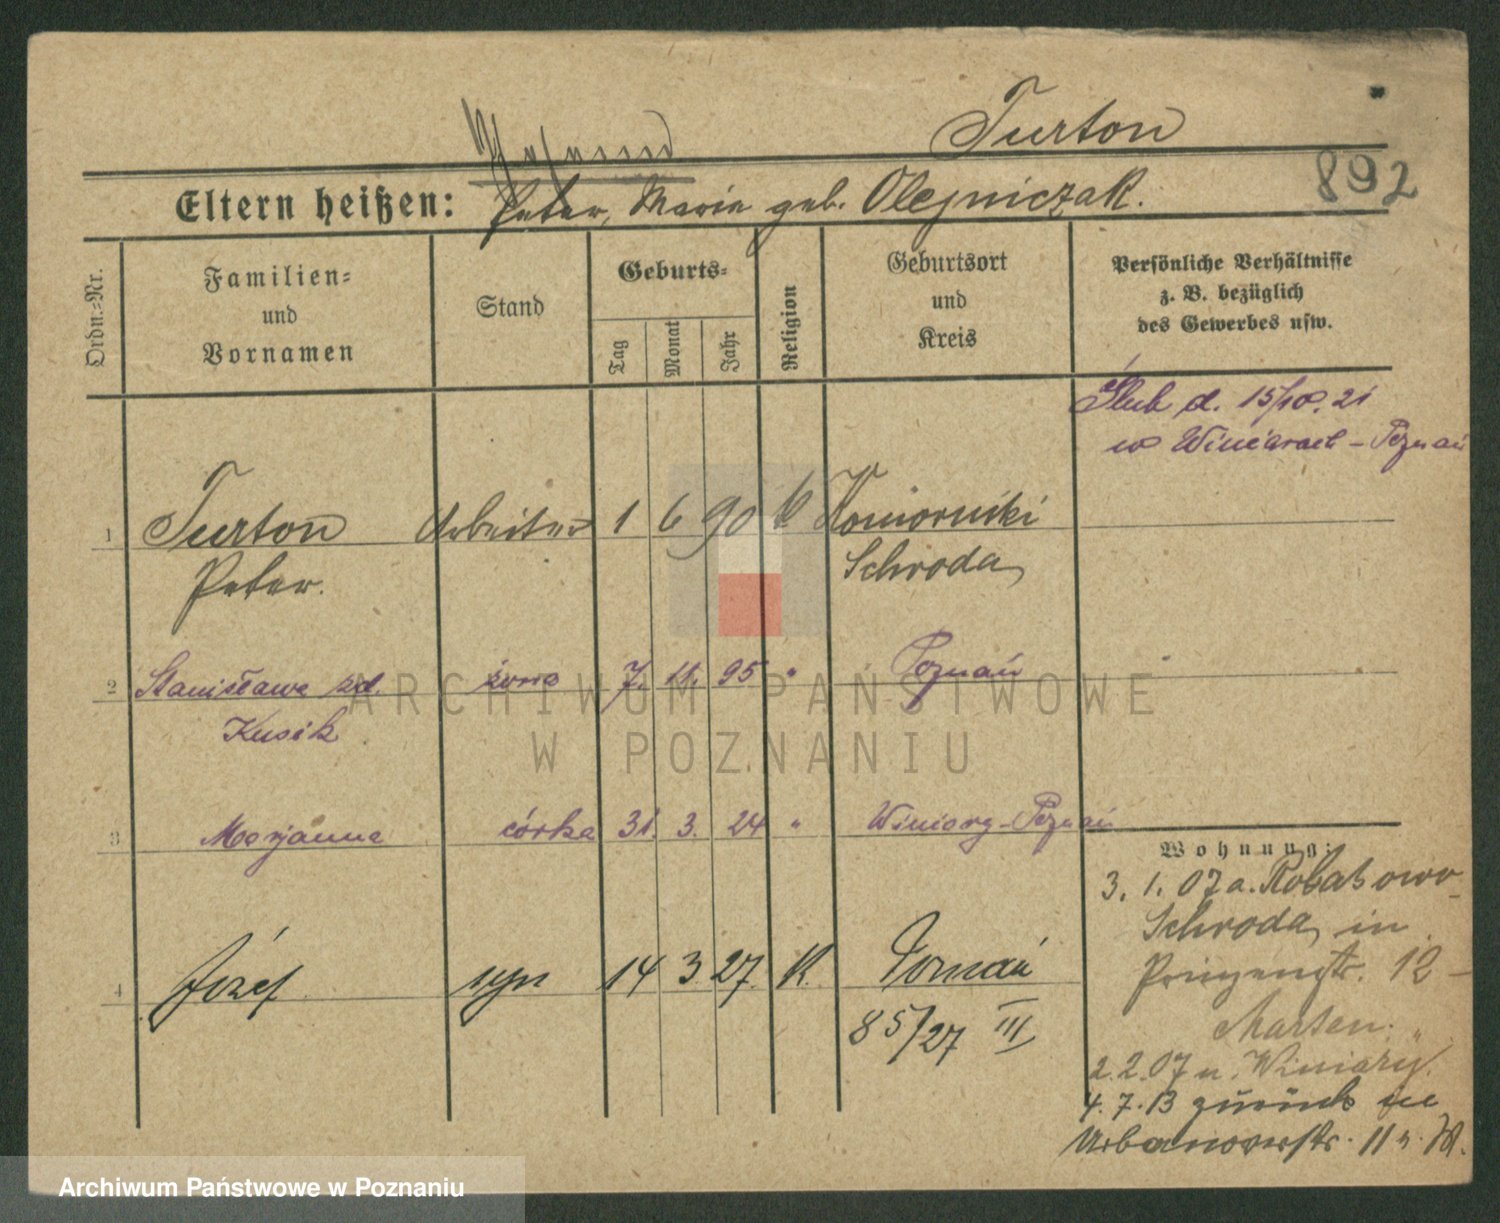 Turton
892
Eltern heißen: Peter, Marie geb. Olejniczak.
Ordn.-Nr.
Familien-
und
Vornamen
Stand
Geburts-
Tag
Monat
Jahr
Religion
Geburtsort
und
Kreis
Persönliche Verhältnisse
z. B. bezüglich
des Gewerbes usw.
Ślub d. 15/10. 21
w Winiarach - Poznań
1 Turton Arbeiter 1 6 90 k Komorniki
Peter. Schroda
2 Stanisława zd. żona 7. 11. 95 " Poznań
Kusik
3 Marjanna córka 31. 3. 24 " Winiary-Poznań
4 Józef syn 14 3 27. K. Poznań
85/27 III
Wohnung:
3. 1. 07 a. Robakowo-
Schroda, in
Prinzenstr. 12 -
Marten.
2. 2. 07 n. Winiary.
4. 7. 13 zurück
Urbanowostr. 11 n. W.
ARCHIWUM PAŃSTWOWE
W POZNANIU
Archiwum Państwowe w Poznaniu